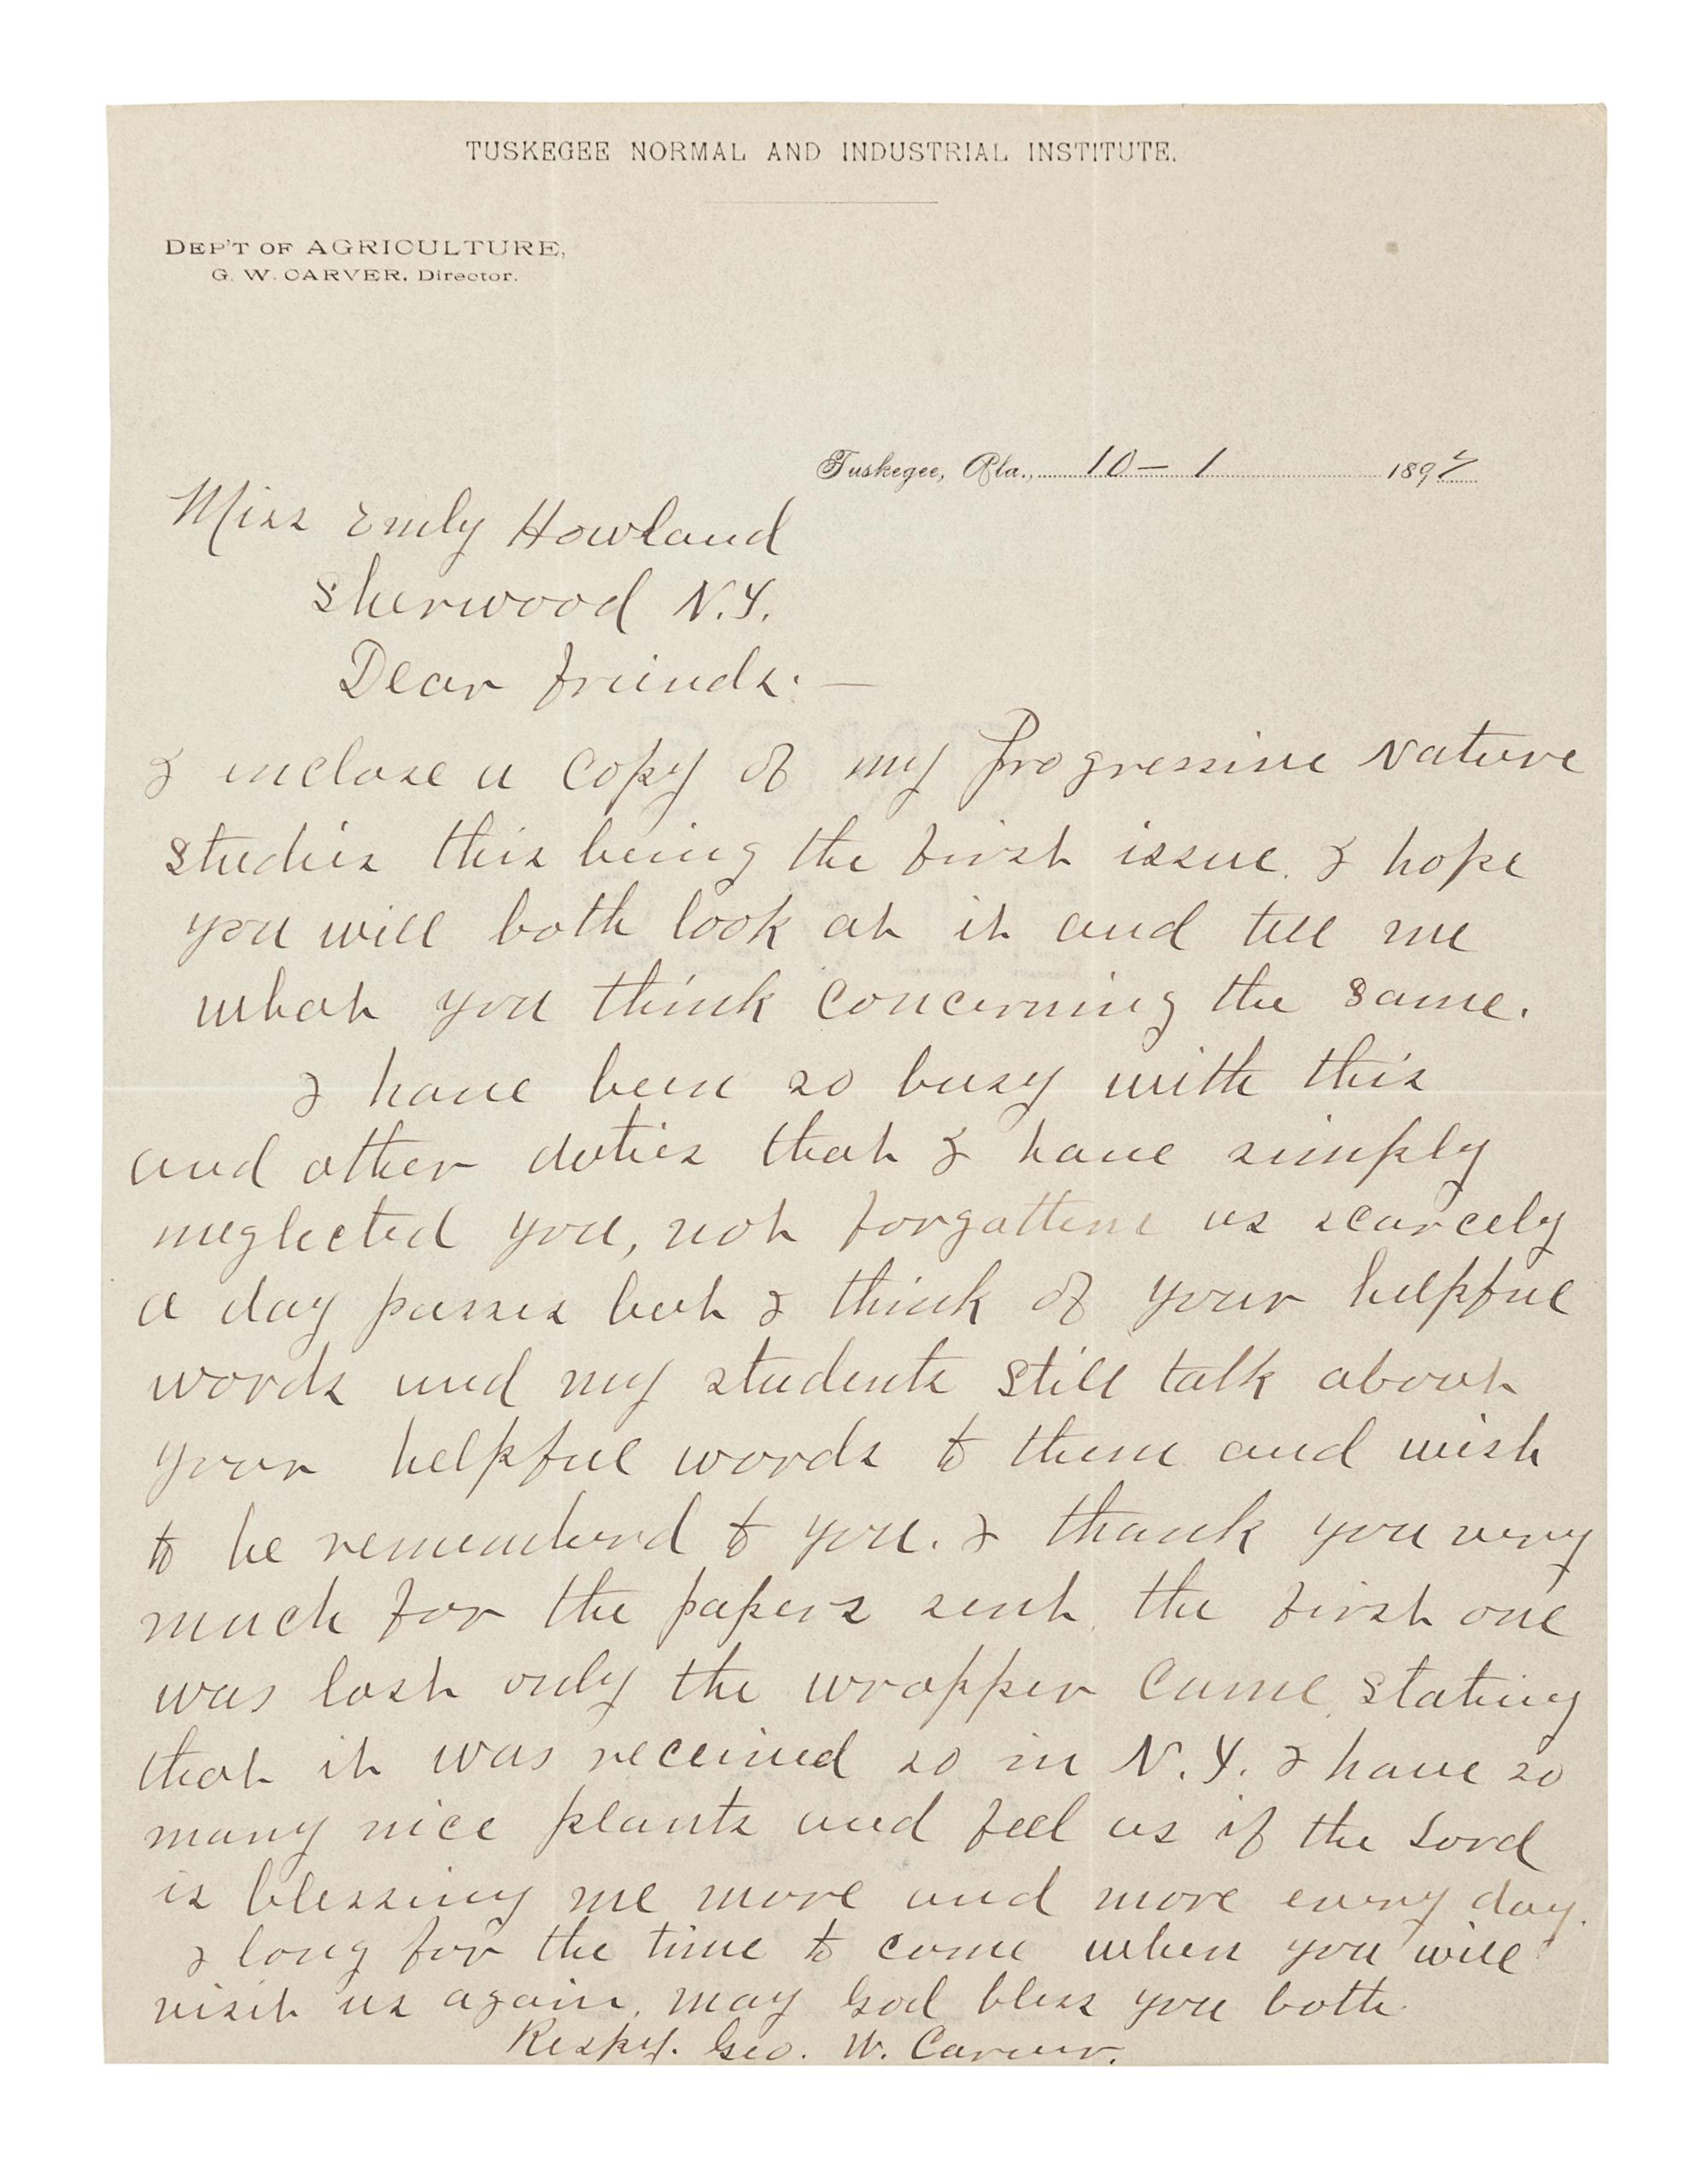 TUSKEGEE NORMAL AND INDUSTRIAL INSTITUTE.
DEP'T OF AGRICULTURE,
G. W. CARVER. Director.
Tuskegee, Ala., 10-1 1897
Miss Emily Howland
Sherwood N.Y.
Dear friends:—
I inclose a copy of my Progressive Nature
studies this being the first issue. I hope
you will both look at it and tell me
what you think concerning the same.
I have been so busy with this
and other duties that I have simply
neglected you, not forgottene as scarcely
a day passes but I think of your helpful
words and my students still talk about
your helpful words to them and wish
to be rememberd to you. I thank you very
much for the papers sent, the first one
was lost only the wrapper came, stating
that it was received so in N.Y. I have so
many nice plants and feel as if the Lord
is blessing me more and more every day.
I long for the time to come when you will
visit us again, may God bless you both.
Respy. Geo. W. Carver.